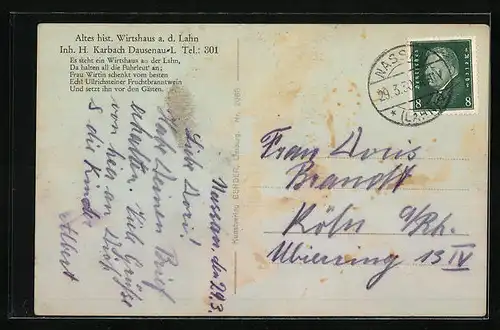 Altes hist. Wirtshaus a. d. Lahn
Inh. H. Karbach Dausenau-L Tel.: 301
Es steht ein Wirtshaus an der Lahn,
Da halten all die Fuhrleut' an;
Frau Wirtin schenkt vom besten
Echt Ullrichsteiner Fruchtbranntwein
Und setzt ihn vor den Gästen.
Nassau, den 29.3.
Liebe Doris!
Habe Deinen Brief
erhalten. Viele Grüße
von hier an Dich
& die Kinder
Albert
Kunstverlag
NASSAU
(LAHN)
8 8
Frau Doris
Brandt
Köln a/Rh.
Ubierring 13 IV